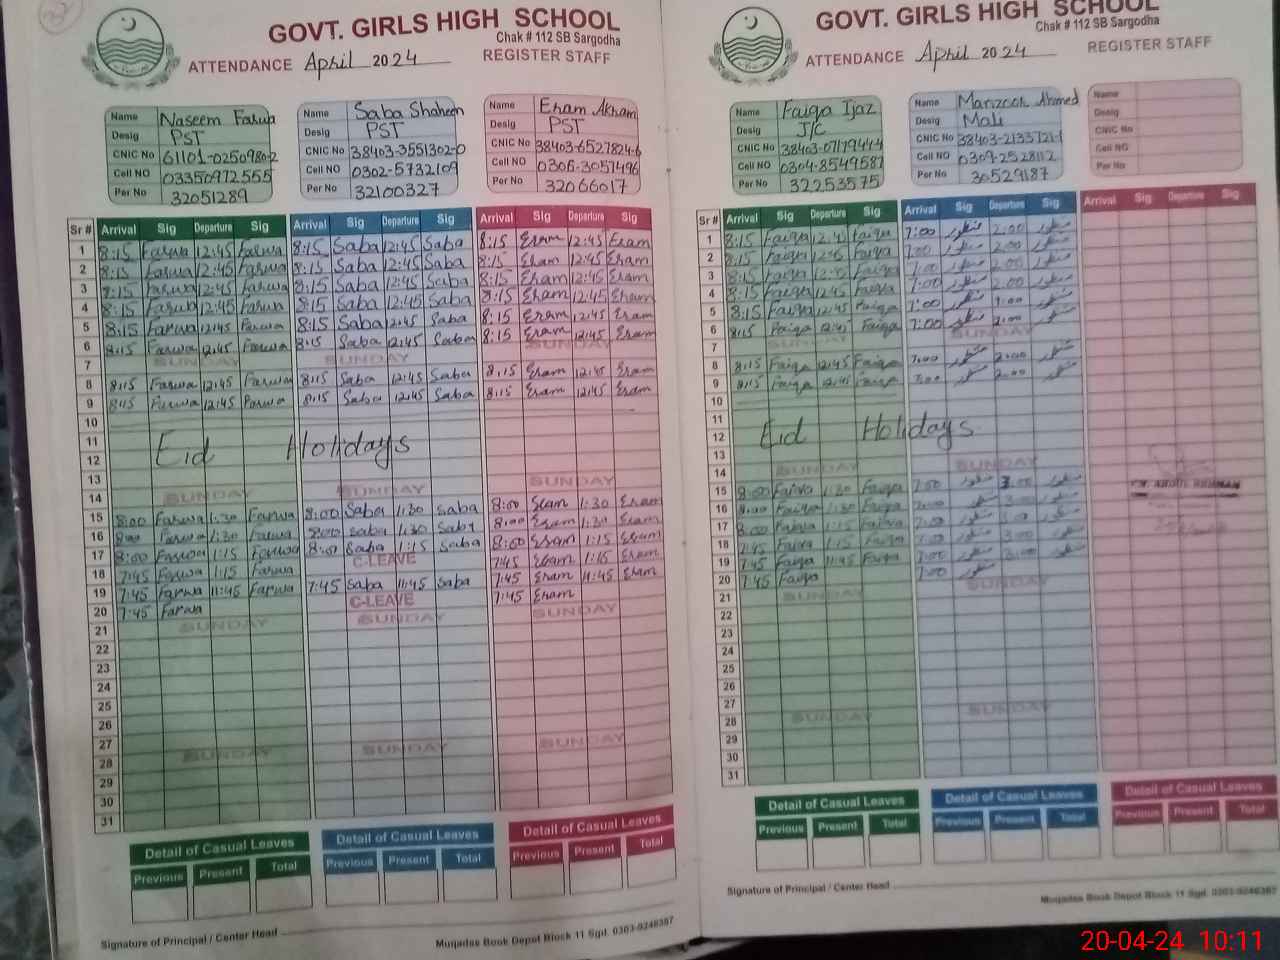 GOVT. GIRLS HIGH SCHOOL
Chak # 112 SB Sargodha
ATTENDANCE April 2024 REGISTER STAFF
Name Naseem Farwa
Desig PST
CNIC No 61101-0250980-2
Cell NO 03350972555
Per No 32051289
Name Saba Shaheen
Desig PST
CNIC No 38403-3551302-0
Cell NO 0302-5732109
Per No 32100327
Name Eram Akram
Desig PST
CNIC No 38403-6527824-6
Cell NO 0306-3057496
Per No 32066017
Sr # Arrival Sig Departure Sig Arrival Sig Departure Sig Arrival Sig Departure Sig
1 8:15 Farwa 12:45 Farwa 8:15 Saba 12:45 Saba 8:15 Eram 12:45 Eram
2 8:15 Farwa 12:45 Farwa 8:15 Saba 12:45 Saba 8:15 Eram 12:45 Eram
3 8:15 Farwa 12:45 Farwa 8:15 Saba 12:45 Saba 8:15 Eram 12:45 Eram
4 8:15 Farwa 12:45 Farwa 8:15 Saba 12:45 Saba 8:15 Eram 12:45 Eram
5 8:15 Farwa 12:45 Farwa 8:15 Saba 12:45 Saba 8:15 Eram 12:45 Eram
6 8:15 Farwa 12:45 Farwa 8:15 Saba 12:45 Saba 8:15 Eram 12:45 Eram
7 SUNDAY SUNDAY SUNDAY
8 8:15 Farwa 12:45 Farwa 8:15 Saba 12:45 Saba 8:15 Eram 12:45 Eram
9 8:15 Farwa 12:45 Farwa 8:15 Saba 12:45 Saba 8:15 Eram 12:45 Eram
10
11 Eid Holidays
12
13
14 SUNDAY SUNDAY SUNDAY
15 8:00 Farwa 1:30 Farwa 8:00 Saba 1:30 Saba 8:00 Eram 1:30 Eram
16 8:00 Farwa 1:30 Farwa 8:00 Saba 1:30 Saba 8:00 Eram 1:30 Eram
17 8:00 Farwa 1:15 Farwa 8:00 Saba 1:15 Saba 8:00 Eram 1:15 Eram
18 7:45 Farwa 1:15 Farwa C-LEAVE 7:45 Eram 1:15 Eram
19 7:45 Farwa 11:45 Farwa 7:45 Saba 11:45 Saba 7:45 Eram 11:45 Eram
20 7:45 Farwa C-LEAVE 7:45 Eram
21 SUNDAY SUNDAY SUNDAY
22
23
24
25
26
27
28 SUNDAY SUNDAY SUNDAY
29
30
31
Detail of Casual Leaves Detail of Casual Leaves Detail of Casual Leaves
Previous Present Total Previous Present Total Previous Present Total
Signature of Principal / Center Head
Muqadas Book Depot Block 11 Sgd. 0303-9246387
GOVT. GIRLS HIGH SCHOOL
Chak # 112 SB Sargodha
ATTENDANCE April 2024 REGISTER STAFF
Name Faiqa Ijaz
Desig J/C
CNIC No 38403-0719444
Cell NO 0304-8549587
Per No 32253575
Name Manzoor Ahmed
Desig Mali
CNIC No 38403-2133721-1
Cell NO 0309-2528112
Per No 30529187
Name
Desig
CNIC No
Cell NO
Per No
Sr # Arrival Sig Departure Sig Arrival Sig Departure Sig Arrival Sig Departure Sig
1 8:15 Faiqa 12:45 Faiqa 7:00 منظور 2:00 منظور
2 8:15 Faiqa 12:45 Faiqa 7:00 منظور 2:00 منظور
3 8:15 Faiqa 12:45 Faiqa 7:00 منظور 2:00 منظور
4 8:15 Faiqa 12:45 Faiqa 7:00 منظور 2:00 منظور
5 8:15 Faiqa 12:45 Faiqa 7:00 منظور منظور
6 8:15 Faiqa 12:45 Faiqa 7:00 منظور 2:00 منظور
7 SUNDAY SUNDAY
8 8:15 Faiqa 12:45 Faiqa 7:00 منظور 2:00 منظور
9 8:15 Faiqa 12:45 Faiqa 7:00 منظور 2:00 منظور
10
11
12 Eid Holidays
13
14 SUNDAY SUNDAY
15 8:00 Faiqa 1:30 Faiqa 7:00 منظور 3:00 منظور
16 8:00 Faiqa 1:30 Faiqa 7:00 منظور 3:00 منظور
17 8:00 Faiqa 1:15 Faiqa 7:00 منظور 3:00 منظور
18 7:45 Faiqa 1:15 Faiqa 7:00 منظور 3:00 منظور
19 7:45 Faiqa 11:45 Faiqa 7:00 منظور 3:00 منظور
20 7:45 Faiqa 7:00 منظور
21 SUNDAY SUNDAY
22
23
24
25
26
27
28 SUNDAY SUNDAY
29
30
31
Detail of Casual Leaves Detail of Casual Leaves Detail of Casual Leaves
Previous Present Total Previous Present Total Previous Present Total
Signature of Principal / Center Head
Muqadas Book Depot Block 11 Sgd. 0303-9246387
20-04-24 10:11